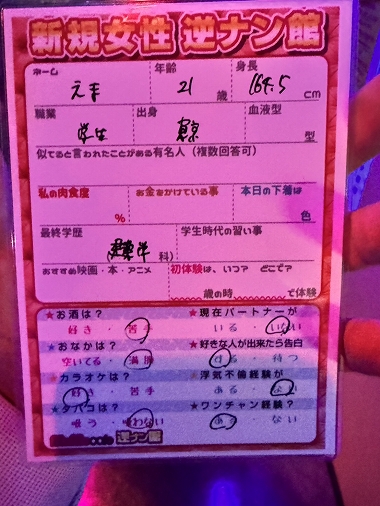 新規女性 逆ナン館
ネーム 年齢 身長
21 歳 164.5 cm
職業 出身 血液型
学生 東京 型
似てると言われたことがある有名人（複数回答可）
私の肉食度 お金をかけている事 本日の下着は
% 色
最終学歴 学生時代の習い事
科）
おすすめ映画・本・アニメ 初体験は、いつ？ どこで？
歳の時 で体験
★お酒は？ ★現在パートナーが
好き ・ 苦手 いる ・ いない
★おなかは？ ★好きな人が出来たら告白
空いてる ・ 満腹 する ・ 待つ
★カラオケは？ ★浮気不倫経験が
好き ・ 苦手 ある ・ ない
★タバコは？ ★ワンチャン経験？
吸う ・ 吸わない ある ・ ない
逆ナン館